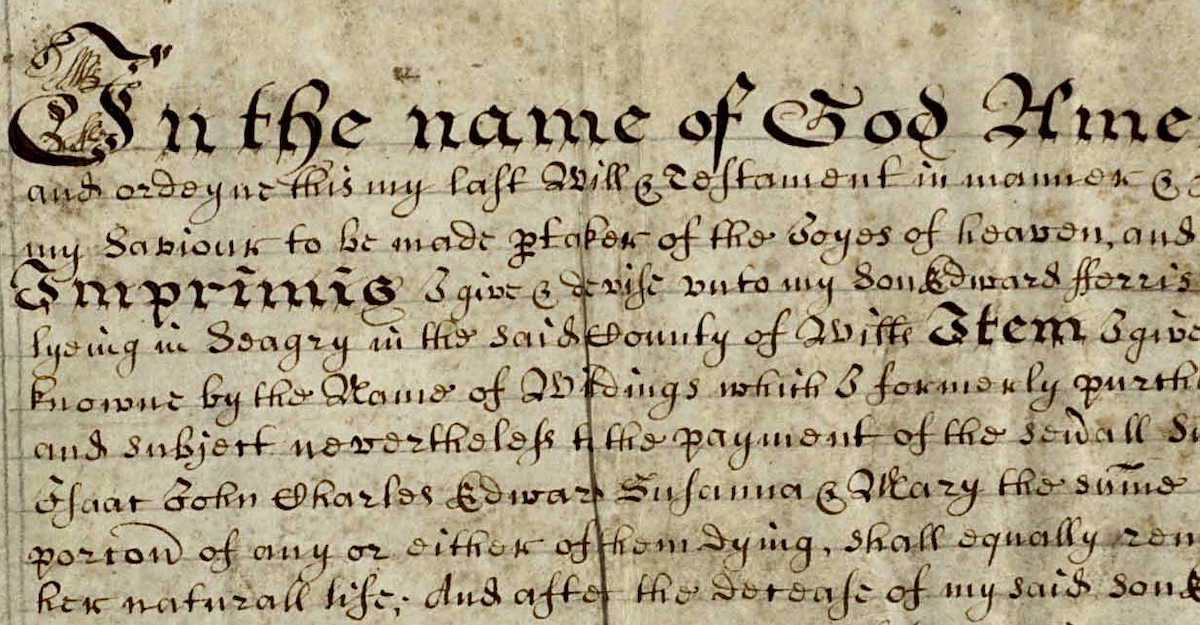 In the name of God Ame
and ordeyne this my last Will & Testament in manner &
my Saviour to be made ptaker of the Joyes of heaven, and
Imprimis I give & devise unto my son Edward fferris
lyeing in Seagry in the said County of Wilts Item I give
knowne by the Name of which I formerly purch
and subject nevertheless to the payment of the sevall Su
Isaac John Charles Edward Susanna & Mary the sume
porcon of any or either of them dying, shall equally rem
her naturall life; And after the decease of my said son E